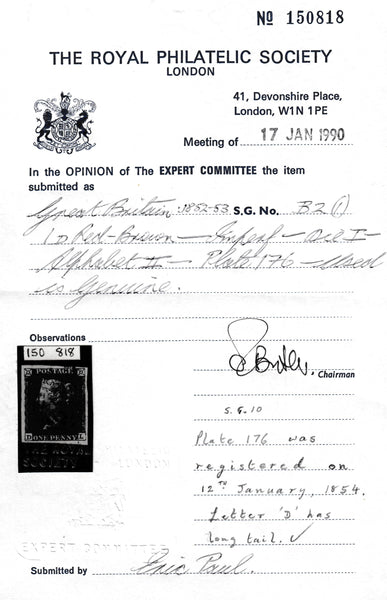 No 150818
THE ROYAL PHILATELIC SOCIETY
LONDON
41, Devonshire Place,
London, W1N 1PE
Meeting of 17 JAN 1990
In the OPINION of The EXPERT COMMITTEE the item
submitted as
Great Britain: 1852-53 S.G. No. B2(1)
1D Red-Brown — Imperf — Die I —
Alphabet II — Plate 176 — Used
is Genuine.
Observations
150 818
POSTAGE
D ONE PENNY L
THE ROYAL
SOCIETY LONDON
EXPERT COMMITTEE
Chairman
S.G. 10
Plate 176 was
registered on
12TH January, 1854.
Letter 'D' has
long tail. ✓
Submitted by Eric Paul.